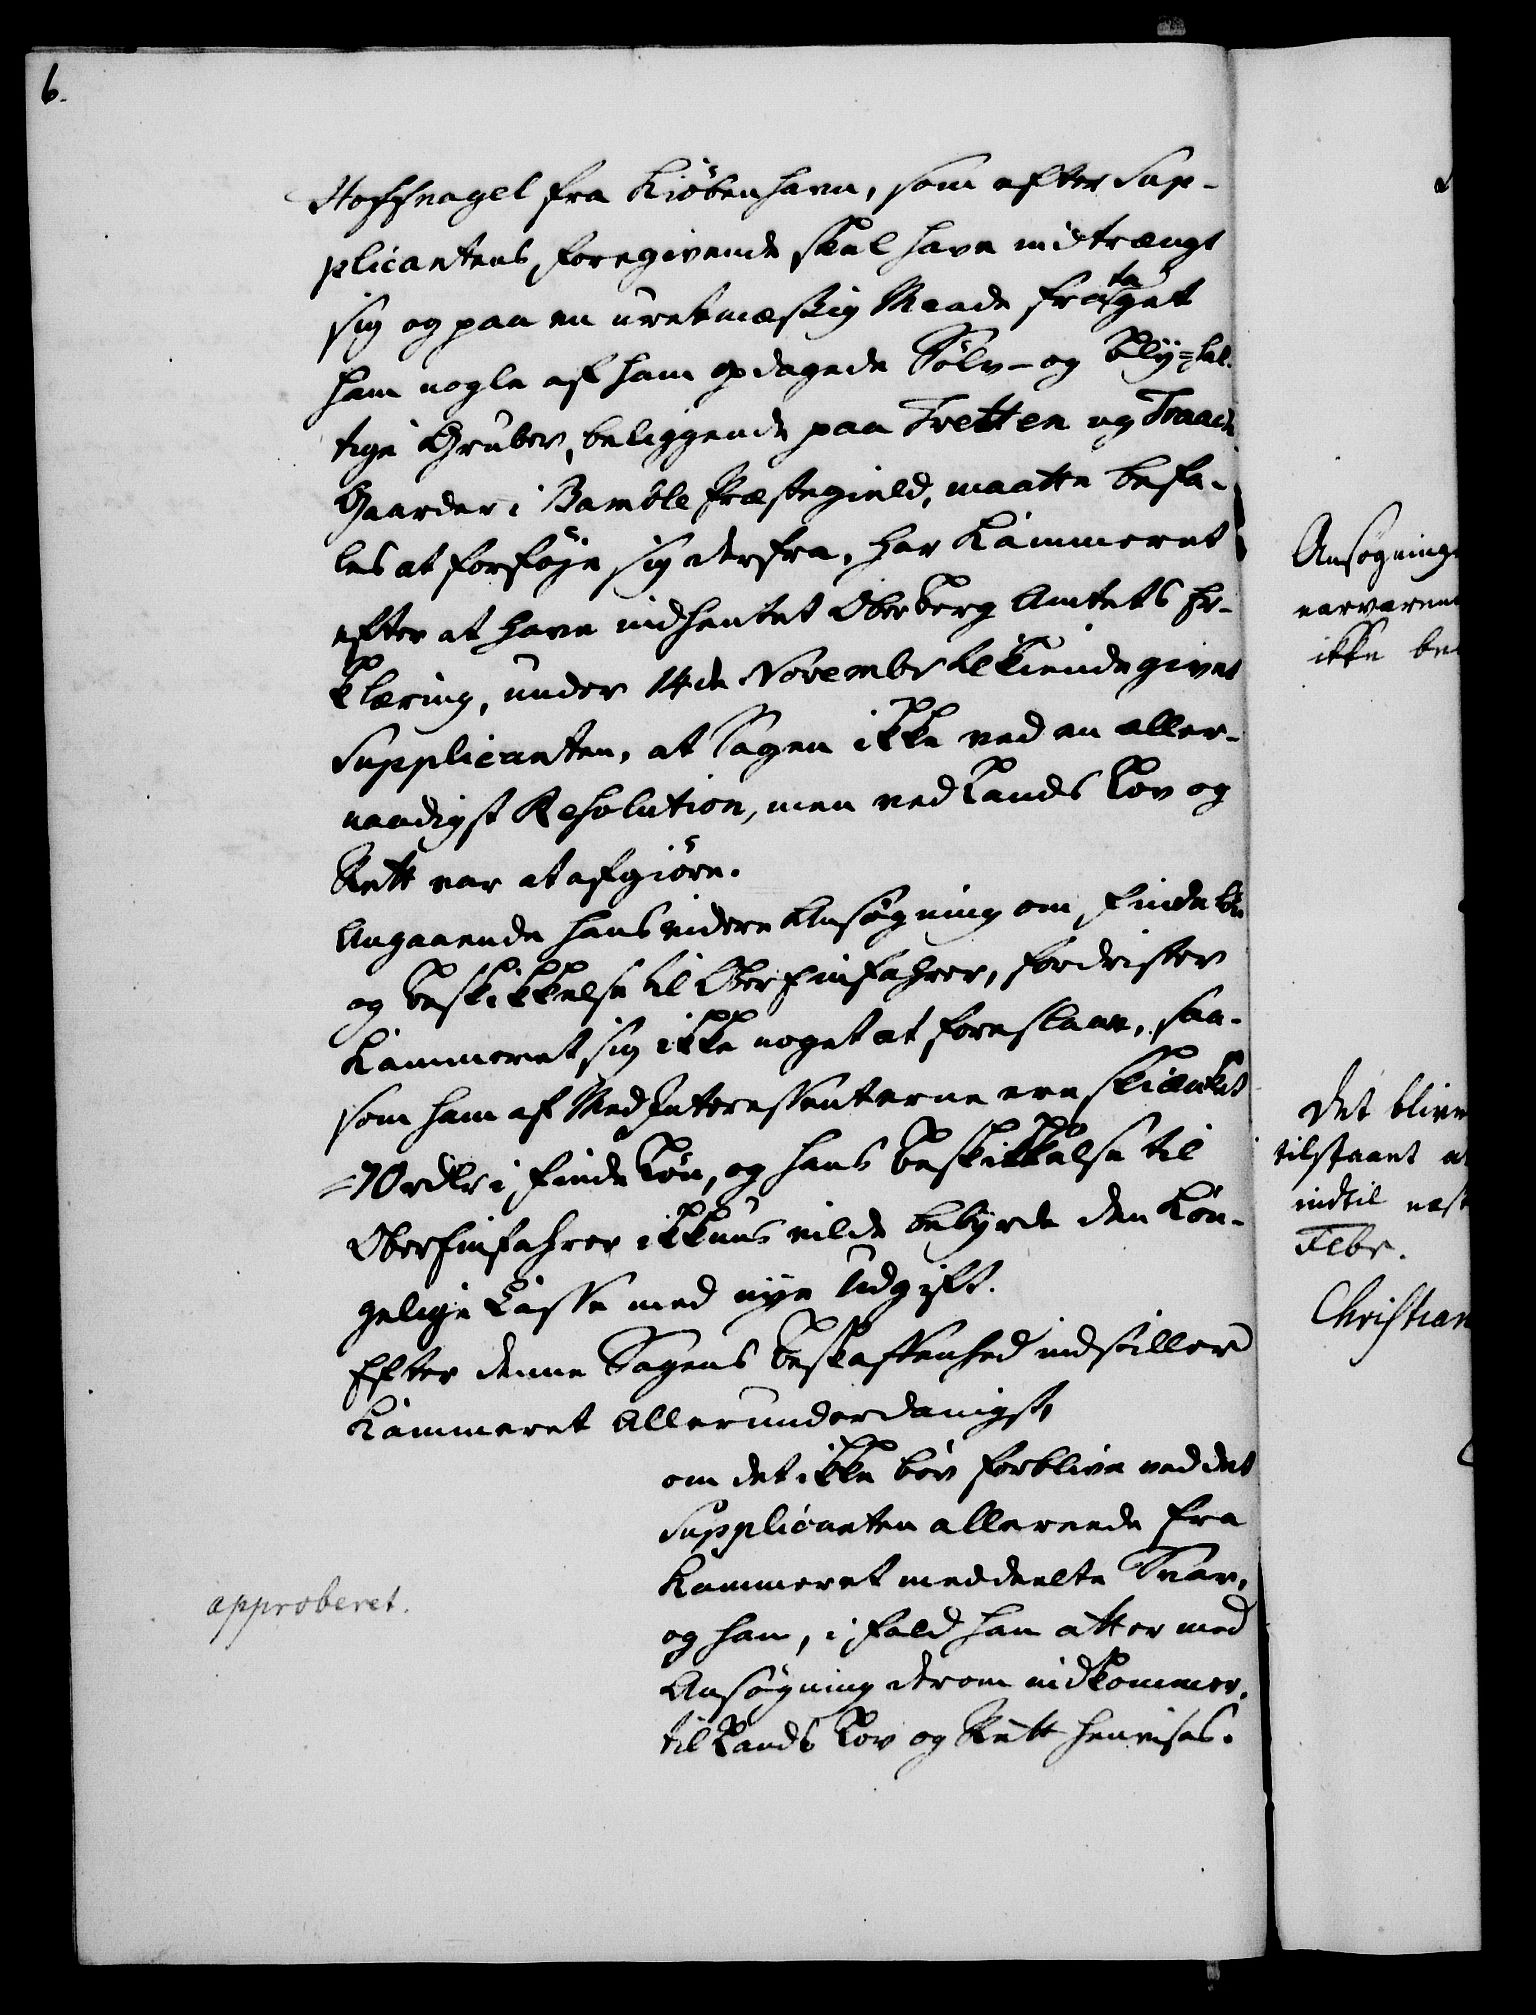 6.
Hoffnagel fra Kiöbenhavn, som efter Sup-
plicantens foregivende skal have indtrængt
sig og paa en uretmæssig Maade frataget
ham nogle af ham opdagede Sölv- og Bly=hal-
tige Gruber, beliggende paa Tvetten og Traack
Gaarder i Bamble Præstegield, maatte befa-
les at forföje sig derfra, har Kammeret
efter at have indhentet Oberberg Amtets Er-
klæring, under 14de Novembr tilkiendegivet
Supplicanten, at Sagen ikke ved en aller-
naadigst Resolution, men ved Lands Lov og
Rett var at afgiöre.
Angaaende hans videre Ansögning om Findelön
og Beskikkelse til Oberfinfahrer, fordrister
Kammeret sig ikke noget at foreslaae, saa-
som ham af MedInteressenterne ere skiænket
70 rdlr i Findelön, og hans Beskikkelse til
Oberfinfahrer ikkuns vilde bebyrde den Kon-
gelige Casse med nye Udgift.
Efter denne Sagens Beskaffenhed indstiller
Kammeret Allerunderdanigst,
om det ikke bör forblive ved det
Supplicanten allereede fra
Kammeret meddeelte Svar,
og han, i fald han atter med
Ansögning derom indkommer,
til Lands Lov og Rett henvises.
approberet.
Ansögning
nærværen
ikke be
Det blive
tilstaaet
indtil næst
Febr.
Christian